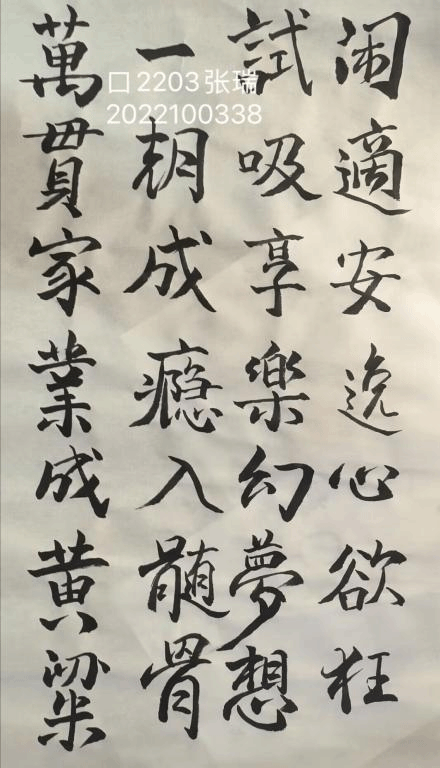 闲適安逸心欲狂
試吸享樂幻夢想
一朝成瘾入髓骨
萬貫家業成黄粱
口2203张瑞
2022100338